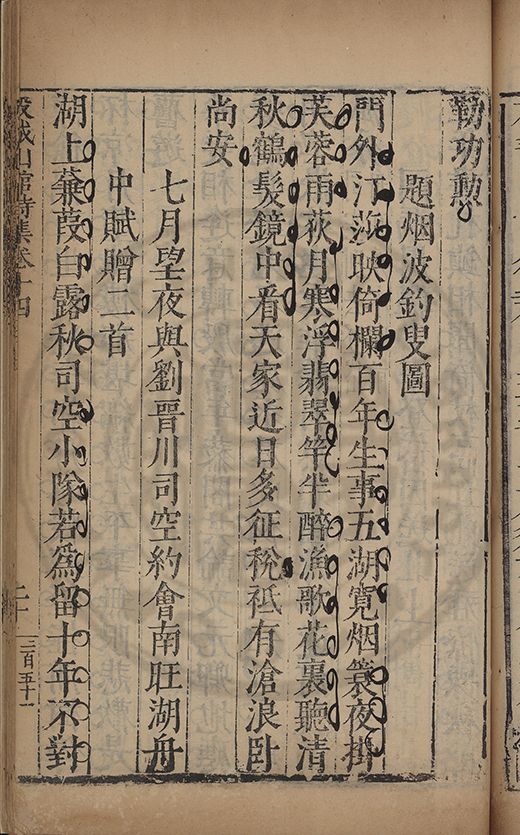 勒功勲
題烟波釣叟圖
門外汀莎映倚欄百年生事五湖寛烟簑夜掛
芙蓉雨荻月寒浮翡翠竿半醉漁歌花裏聽清
秋鶴髮鏡中看天家近日多征稅祗有滄浪卧
尚安
七月望夜與劉晉川司空約會南旺湖舟
中賦贈二首
湖上蒹葭白露秋司空小隊若爲留十年不對
穀城山館詩集卷十四
二十
三百五十一